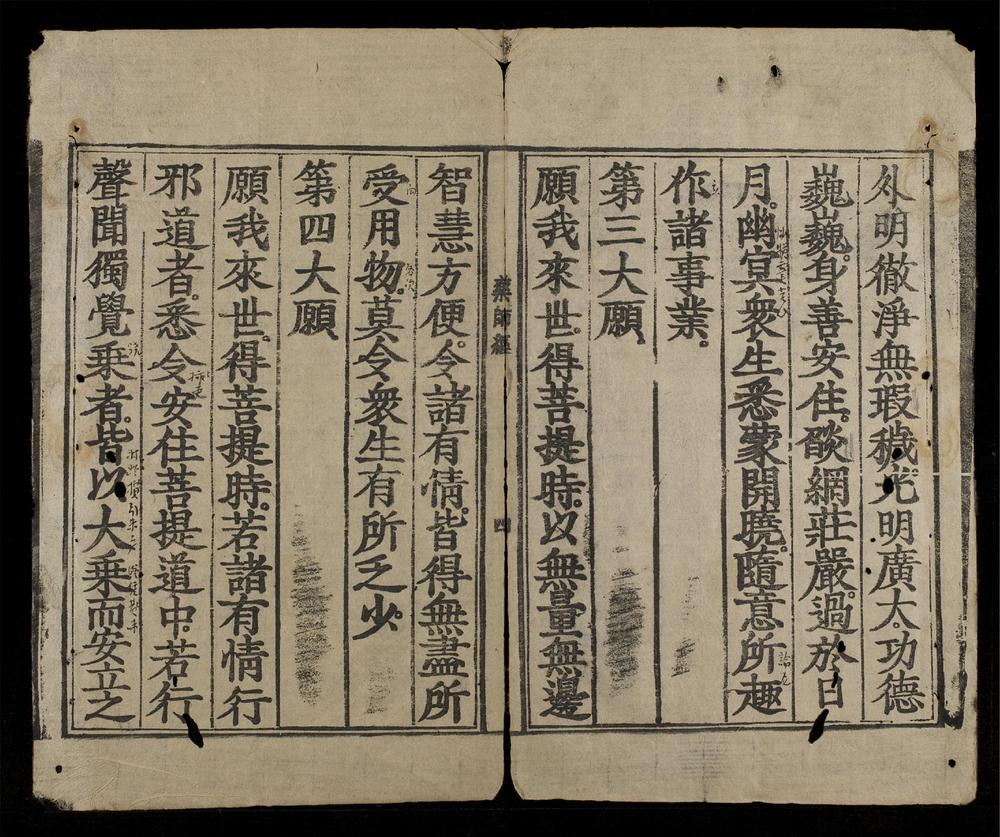 外明徹淨無瑕穢光明廣大功德
巍巍身善安住㷔網莊嚴過於日
月幽冥衆生悉蒙開曉隨意所趣
作諸事業
第三大願
願我來世得菩提時以無量無邊
藥師經 四
智慧方便令諸有情皆得無盡所
受用物莫令衆生有所乏少
第四大願
願我來世得菩提時若諸有情行
邪道者悉令安住菩提道中若行
聲聞獨覺乗者皆以大乗而安立之